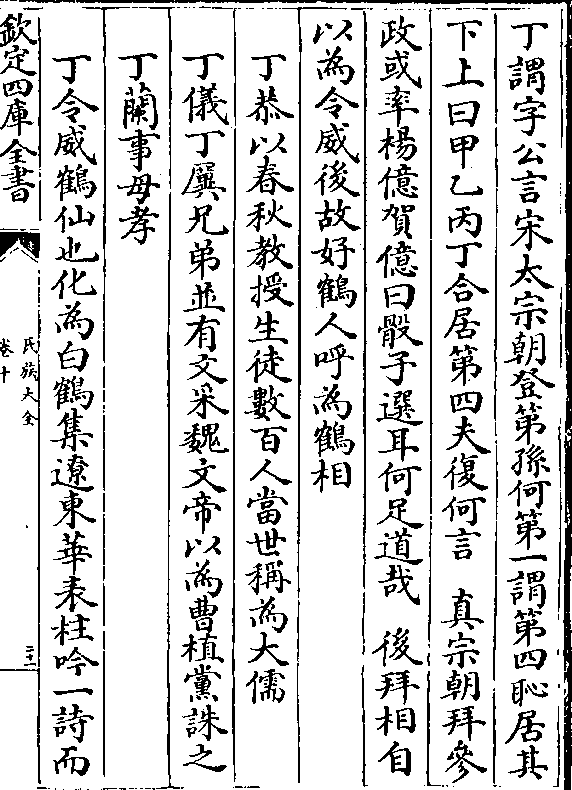 丁謂字公言宋太宗朝登第孫何第一謂第四恥居其
下上曰甲乙丙丁合居第四夫復何言　真宗朝拜參
政或率楊億賀億曰骰子選耳何足道哉　後拜相自
以為令威後故好鶴人呼為鶴相
丁恭以春秋教授生徒數百人當世稱為大儒
丁儀丁廙兄弟並有文采魏文帝以為曹植黨誅之
丁蘭事母孝
丁令威鶴仙也化為白鶴集遼東華表柱吟一詩而
欽定四庫全書
氏族大全
卷十
三十二